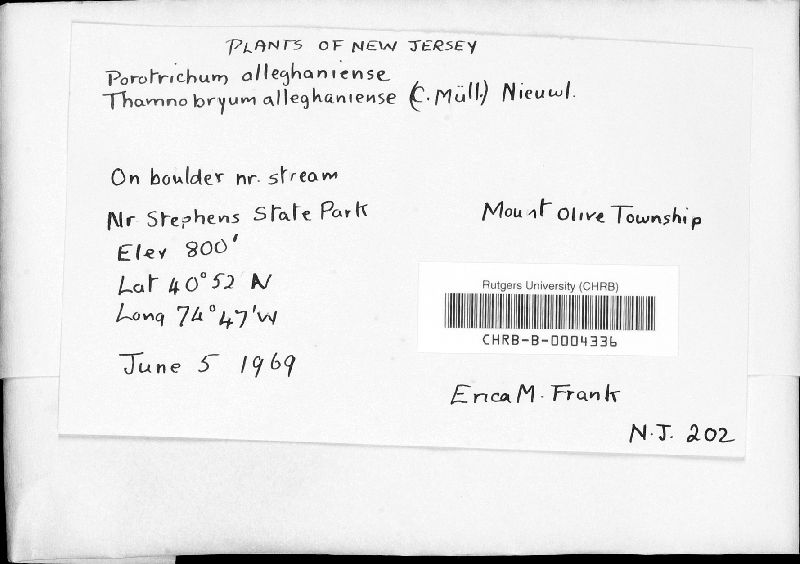 PLANTS OF NEW JERSEY
Porotrichum alleghaniense
Thamnobryum alleghaniense (C. Müll.) Nieuwl.
On boulder nr. stream
Nr Stephens State Park
Mount Olive Township
Elev 800'
Lat 40°52 N
Long 74°47'W
Rutgers University (CHRB)
CHRB-B-0004336
June 5 1969
Erica M. Frank
N.J. 202